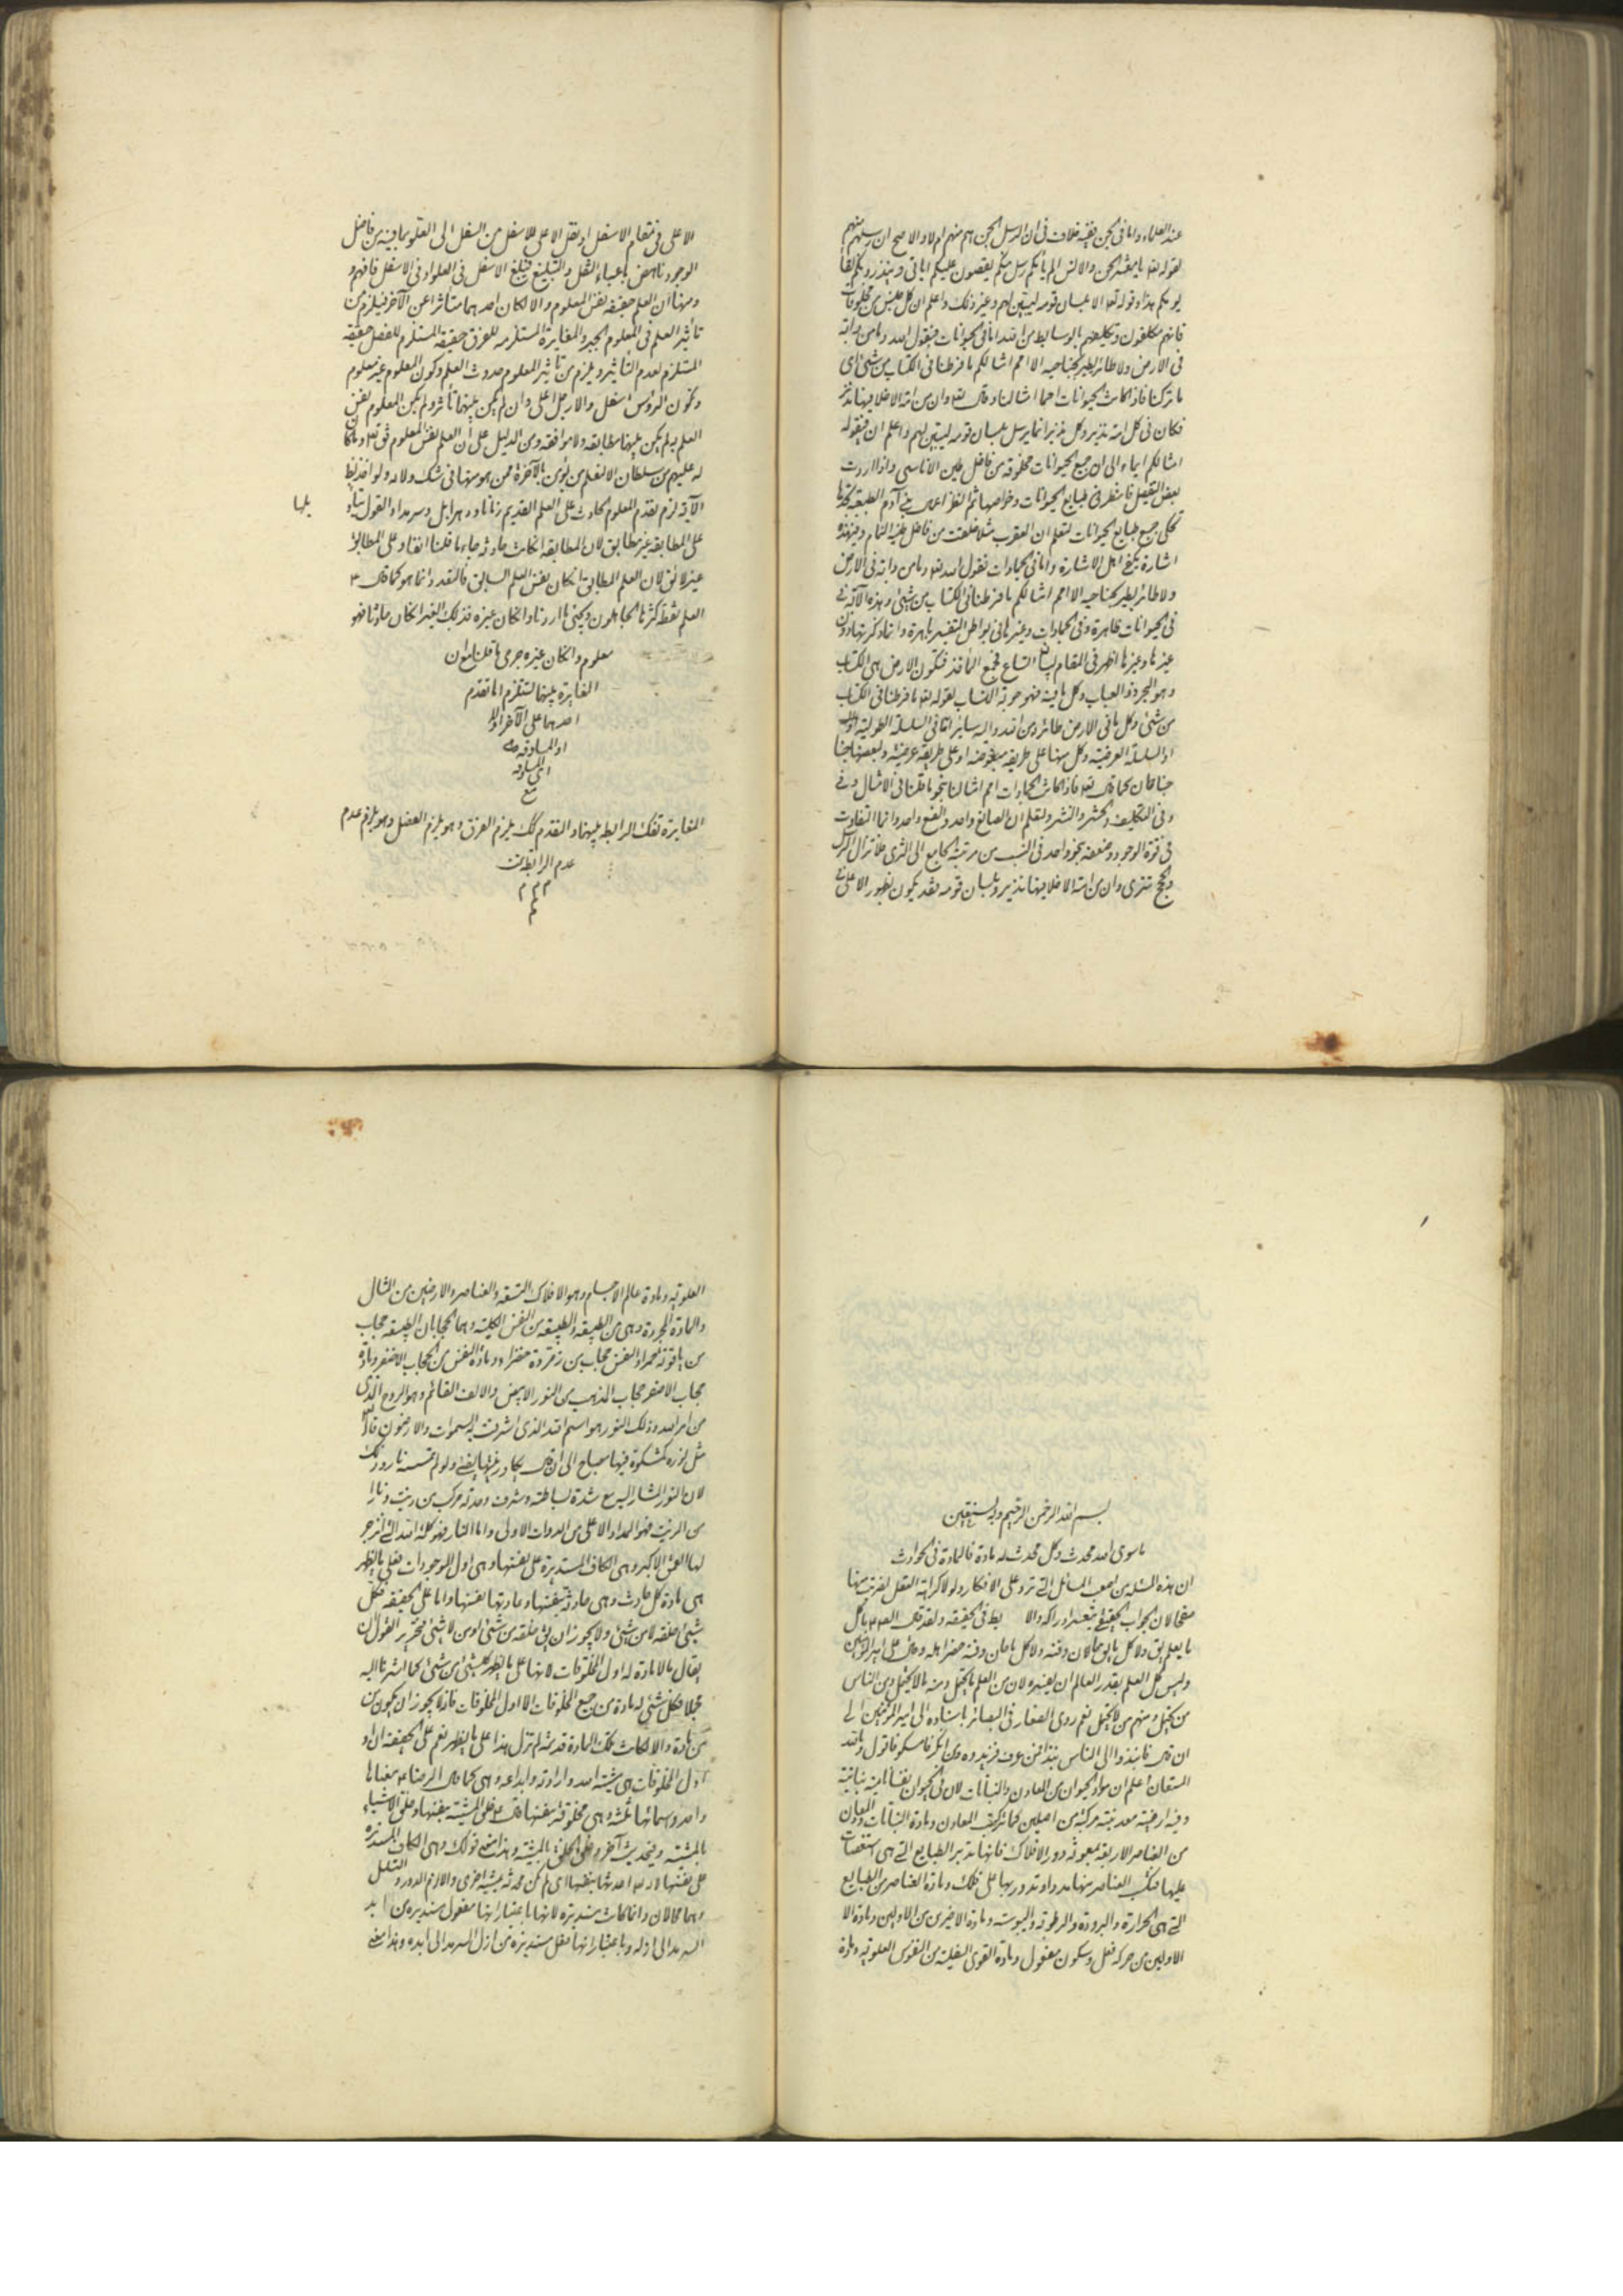 عند العلماء واما فى الجن ففيه خلاف فى ان الرسل الجن هم منهم ام لا والاصح ان رسلهم منهم
لقوله تعه يا معشر الجن والانس الم يأتكم رسل منكم يقصون عليكم اياتى وينذرونكم لقاء
يومكم هذا وقوله تعه الا بلسان قومه ليبين لهم وغير ذلك واعلم ان كل جنس من مخلوقات
فانهم مكلفون وتكليفهم بالوسايط من الله اما فى الحيوانات فبقول الله وما من دابة
فى الارض ولا طائر يطير بجناحيه الا امم امثالكم ما فرطنا فى الكتاب من شىء اى
ما تركنا فاذا كانت الحيوانات امما امثالنا وقال تعه وان من امة الا خلا فيها نذير
فكان فى كل امة نذير وكل نذير انما يرسل بلسان قومه ليبين لهم واعلم ان بقوله
امثالكم ايماء الى ان جميع الحيوانات مخلوقة من فاضل طين الاناسى واذا اردت
بعض التفصيل فانظر فى طبايع الحيوانات وخواصها ثم انظر اعمال بنى آدم الطبيعية تجدها
تحكى جميع طبايع الحيوانات لتعلم ان العقرب مثلا خلقت من فاضل طينة النمام وفى هذه
اشارة تكفى اهل الاشارة واما فى الجمادات فقول الله تعه وما من دابة فى الارض
ولا طائر يطير بجناحيه الا امم امثالكم ما فرطنا فى الكتاب من شىء وهذه الآية فى
فى الحيوانات ظاهرة وفى الجمادات وغيرها فى بواطن التفسير باهرة وانما ذكرتها دون
غيرها وغيرها اظهر فى المقام لبيان اتساع المأخذ فتكون الارض هى الكتاب
وهو البحر ذو العباب وكل ما فيه فهو حوته الكتاب لقوله تعه ما فرطنا فى الكتاب
من شىء وكل ما فى الارض طائر ومن الله واليه سايرا اما فى السلسلة الطولية او
او السلسلة العرضية وكل منها على طريقة او على طريقة عرضية وبعضها
جناحان كما قال تعه فاذا كانت الجمادات امم امثالنا بنحو ما قلنا فى الامثال وفى
وفى التكليف والحشر والنشر ولتعلم ان الصانع واحد والصنع واحد وانما التفاوت
فى قوة الوجود وضعفه بنحو واحد فى النسب من مرتبة الجامع الى الثرى فلا تزال الرسل
والحجج تترى وان من امة الا خلا فيها نذير وبلسان قومه فقد يكون بظهور الاعلى فى
الاعلى فى مقام الاسفل او نقل الاعلى للاسفل من السفل الى العلو بما فيه من فاضل
الوجود ناهض باعباء الثقل والتبليغ فيبلغ الاسفل فى العلو او فى الاسفل فافهم و
ومنها ان العلم حقيقة نفس المعلوم والا لكان احدهما متأثرا عن الآخر فيلزم من
تأثير العلم فى المعلوم الجبر والمغايرة المستلزمة للفرق حقيقة المستلزم للفصل حقيقة
المستلزم لعدم التأثير ويلزم من تاثير المعلوم حدوث العلم وكون المعلوم غير معلوم
وتكون الرؤس اسفل والارجل اعلى وان لم يكن بينهما تأثر ولم يكن المعلوم نفس
العلم لم يكن بينهما مطابقة ولا موافقة ومن الدليل على ان العلم نفس المعلوم قوله تعه وما كان
له عليهم من سلطان الا لنعلم من يؤمن بالآخرة ممن هو منها فى شك ولانه ولو اخذ بلفظ
الآية لزم تقدم المعلوم الحادث على العلم القديم زمانا ودهرا بل وسرمدا والقول بناء
بلها
على المطابقة غير مطابق لان المطابقة ان كانت حادثة جاء ما قلنا انفا وعلى المطابق
غير لائق لان العلم المطابق ان كان نفس العلم السابق فالتعدد انما هو كما قال ٣
العلم نقطة كثرها الجاهلون ويكفى ما اردنا وان كان غيره فذلك الغير ان كان حادثا فهو
معلوم وان كان غيره جرى ما قلنا من ان
المغايرة بينهما تستلزم اما تقدم
احدهما على الآخر اولا
او المساوقة
المساوقة
مع
المغايرة تفكك الرابطة بينهما والتقدم كك يلزم الفرق وهو يلزم الفصل وهو يلزم عدم
عدم الرابطة تمت
م م م
م
بسم الله الرحمن الرحيم وبه نستعين
ما سوى الله محدث وكل محدث له مادة فالمادة فى الحوادث
ان هذه المسئلة من اصعب المسائل التى ترد على الافكار ولولا كراهة النقل لضربت عنها
صفحا لان الجواب الحقيقى يتعسر ادراكه والا بط فى الحقيقة ولقد قال الص ع ما كل
ما يعلم يق ولا كل ما يق حان وقته ولا كل ما حان وقته حضر اهله وعن على امير المؤمنين
وليس كل العلم يقدر العالم ان يفسره لان من العلم ما يحتمل ومنه ما لا يحتمل ومن الناس
من يحتمل ومنهم من لا يحتمل نعم روى الصفار فى البصائر باسناده الى امير المؤمنين الى
ان قال فانبذوا الى الناس نبذا فمن عرف فزيدوه ومن انكر فامسكوا فاقول وبالله
المستعان اعلم ان مواد الحيوان من المعادن والنباتات لان فى الحيوان نفسا نامية نباتية
وفيه ارضية معدنية مركبة من اصلين كما تركب المعادن ومادة النباتات والمعادن
من العناصر الاربعة بمعونة دور الافلاك فانها تدبر الطبايع التى هى استقصات
عليها فتكسب العناصر منها مددا وتدور بها على تلك ومادة العناصر من الطبايع
التى هى الحرارة والبرودة والرطوبة واليبوسة ومادة الاخيرين من الاولين ومادة الا
الاولين من حركة فعل وسكون مفعول ومادة القوى السفلية من النفوس العلوية ومادة
العلوية ومادة عالم الاجسام وهو الافلاك التسعة والعناصر والارضين من المثال
والمادة المجردة وهى من الطبيعة والطبيعة من النفس الكلية وهما الحجابان الطبيعة حجاب
من ياقوتة حمراء والنفس حجاب من زمردة خضراء ومادة النفس من الحجاب الاصفر ومادة
حجاب الاصفر حجاب الذهب من النور الابيض والالف القائم وهو الروح الذى
من امر الله وذلك النور هو اسم الله الذى اشرقت به السموات والارضون قال الله
مثل نوره كمشكوة فيها مصباح الى ان قال يكاد زيتها يضىء ولو لم تمسسه نار وذلك
لان النور المشار اليه مع شدة بساطته وشرف وحدته مركب من زيت ونار ا
من الزيت فهو المداد الاعلى من الدوات الاولى واما النار فهو كلمة الله التى انزجر
لها العمق الاكبر وهى الكاف المستديرة على نفسها وهى اول الموجودات فعلى ما يظهر
هى مادة كل حادث وهى حادثة بنفسها ومادتها نفسها واما على الحقيقة فكل
شىء خلقه لا من شىء ولا يجوز ان يق خلقه من شىء او من لا شىء فتحرير القول ان
يقال بالمادة له اول المخلوقات لانها على ما يظهر ليست من شىء كما اشرنا اليه
مجملا فكل شىء له مادة من جميع المخلوقات الا اول المخلوقات فانه لا يجوز ان يكون من
من مادة والا لكانت تلك المادة قديمة لم تزل هذا على ما يظهر نعم على الحقيقة ان او
اول المخلوقات هى مشية الله وارادته وابداعه وهى كما قال الرضا ع معناها
واحد واسمائها ثلثة وهى مخلوقة بنفسها قال ع خلق المشية بنفسها وخلق الاشياء
بالمشية وفى حديث آخر وخلق الخلق بالمشية وهذا معنى قولك وهى الكاف المستديرة
على نفسها لانه تعه احدثها بنفسها اى لم تكن محدثة بمشية اخرى والا لزم الدور والتسلسل
وهما محالان وانما كانت مستديرة لانها باعتبار انها مفعول مستديرة من ابد
السرمد الى ازله وباعتبار انها فعل مستديرة من ازل السرمد الى ابده وهذا معنى